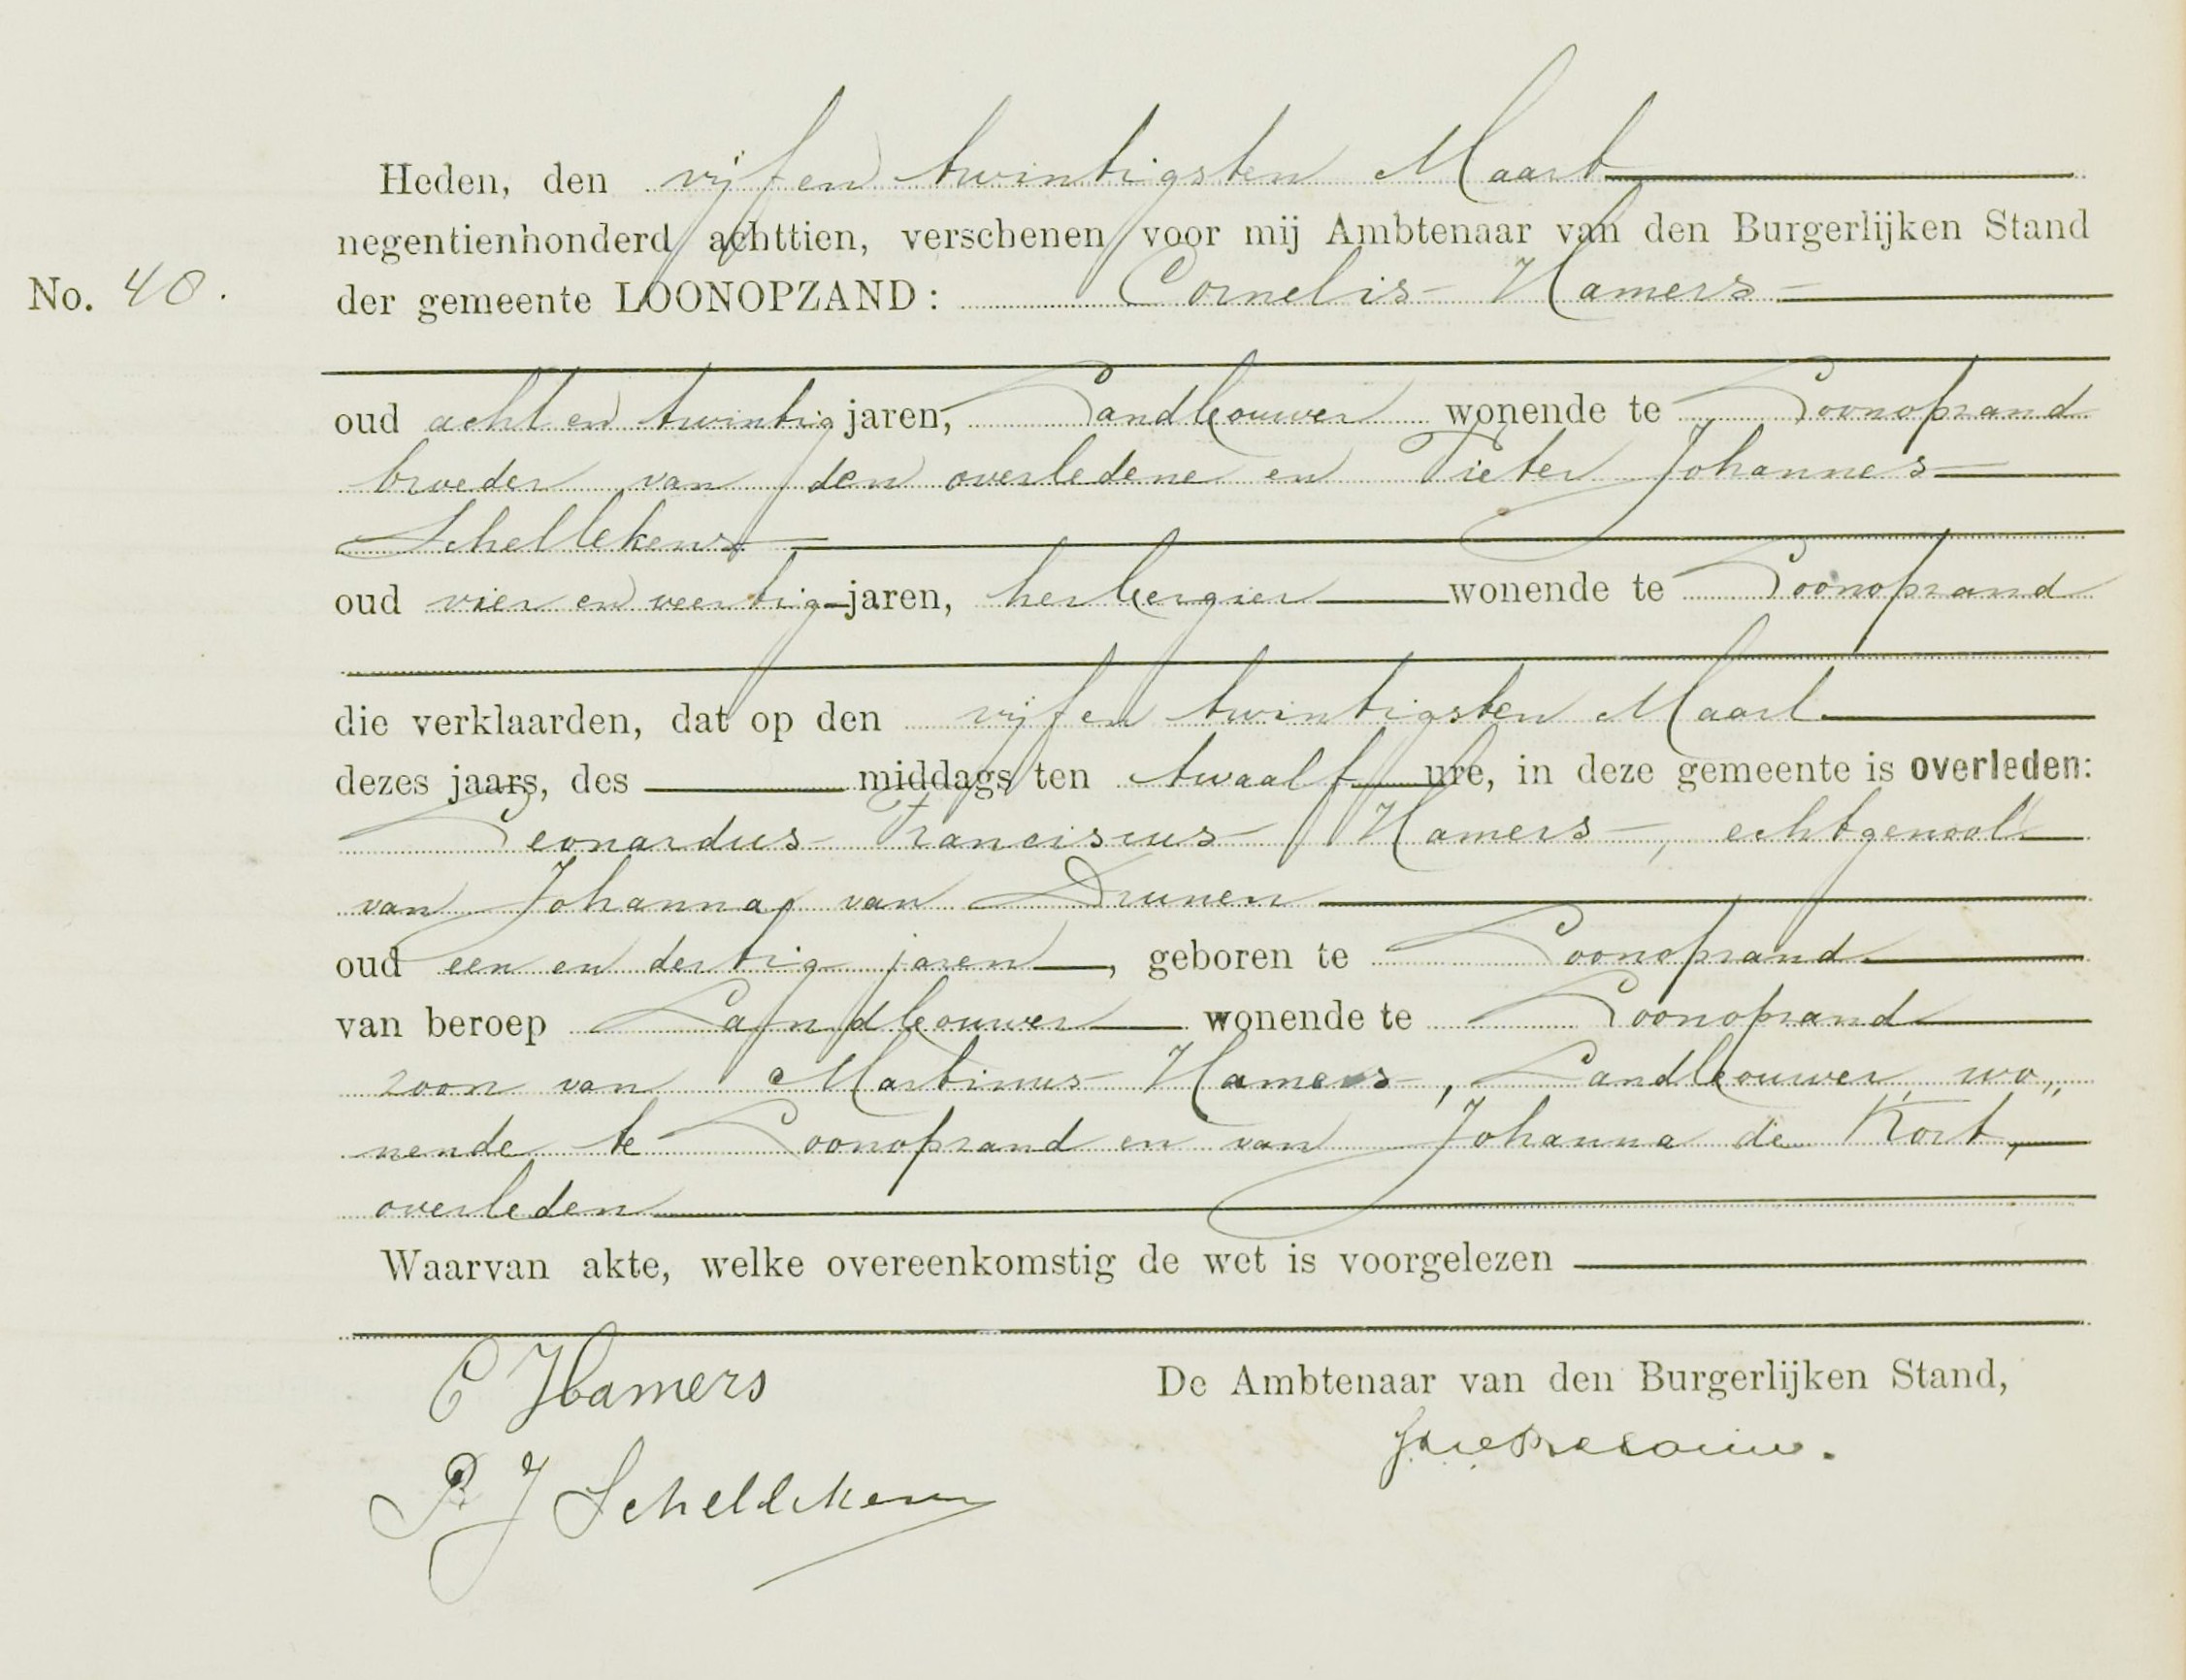 Heden, den vijf en twintigsten Maart
negentienhonderd achttien, verschenen voor mij Ambtenaar van den Burgerlijken Stand
No. 40. der gemeente LOONOPZAND: Cornelis Hamers
oud acht en twintig jaren, Landbouwer wonende te Loonopzand
broeder van den overledene en Pieter Johannes
Schellekens
oud vier en veertig jaren, herbergier wonende te Loonopzand
die verklaarden, dat op den vijf en twintigsten Maart
dezes jaars, des middags ten twaalf ure, in deze gemeente is overleden:
Leonardus Franciscus Hamers, echtgenoot
van Johanna van Drunen
oud een en dertig jaren, geboren te Loonopzand
van beroep Landbouwer wonende te Loonopzand
zoon van Martinus Hamers, Landbouwer, wo„
nende te Loonopzand en van Johanna de Kort,
overleden
Waarvan akte, welke overeenkomstig de wet is voorgelezen
C Hamers
De Ambtenaar van den Burgerlijken Stand,
P J Schellekens